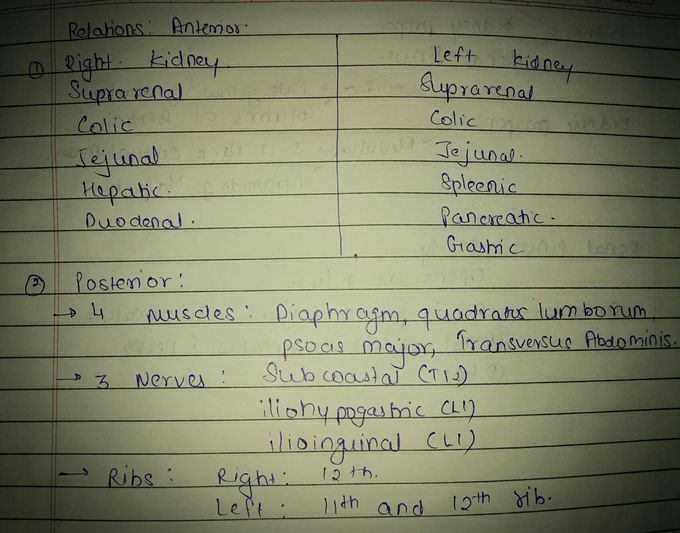 Relations: Anterior.
① Right. kidney. Left kidney
Suprarenal Suprarenal
Colic Colic
Jejunal Jejunal.
Hepatic. Spleenic
Duodenal. Pancreatic.
Gastric
② Posterior:
→ 4 Muscles: Diaphragm, quadratus lumborum,
psoas major, Transversus Abdominis.
→ 3 Nerves: Subcoastal (T12)
iliohypogastric (L1)
ilioinguinal (L1)
→ Ribs: Right: 12th.
Left: 11th and 12th rib.